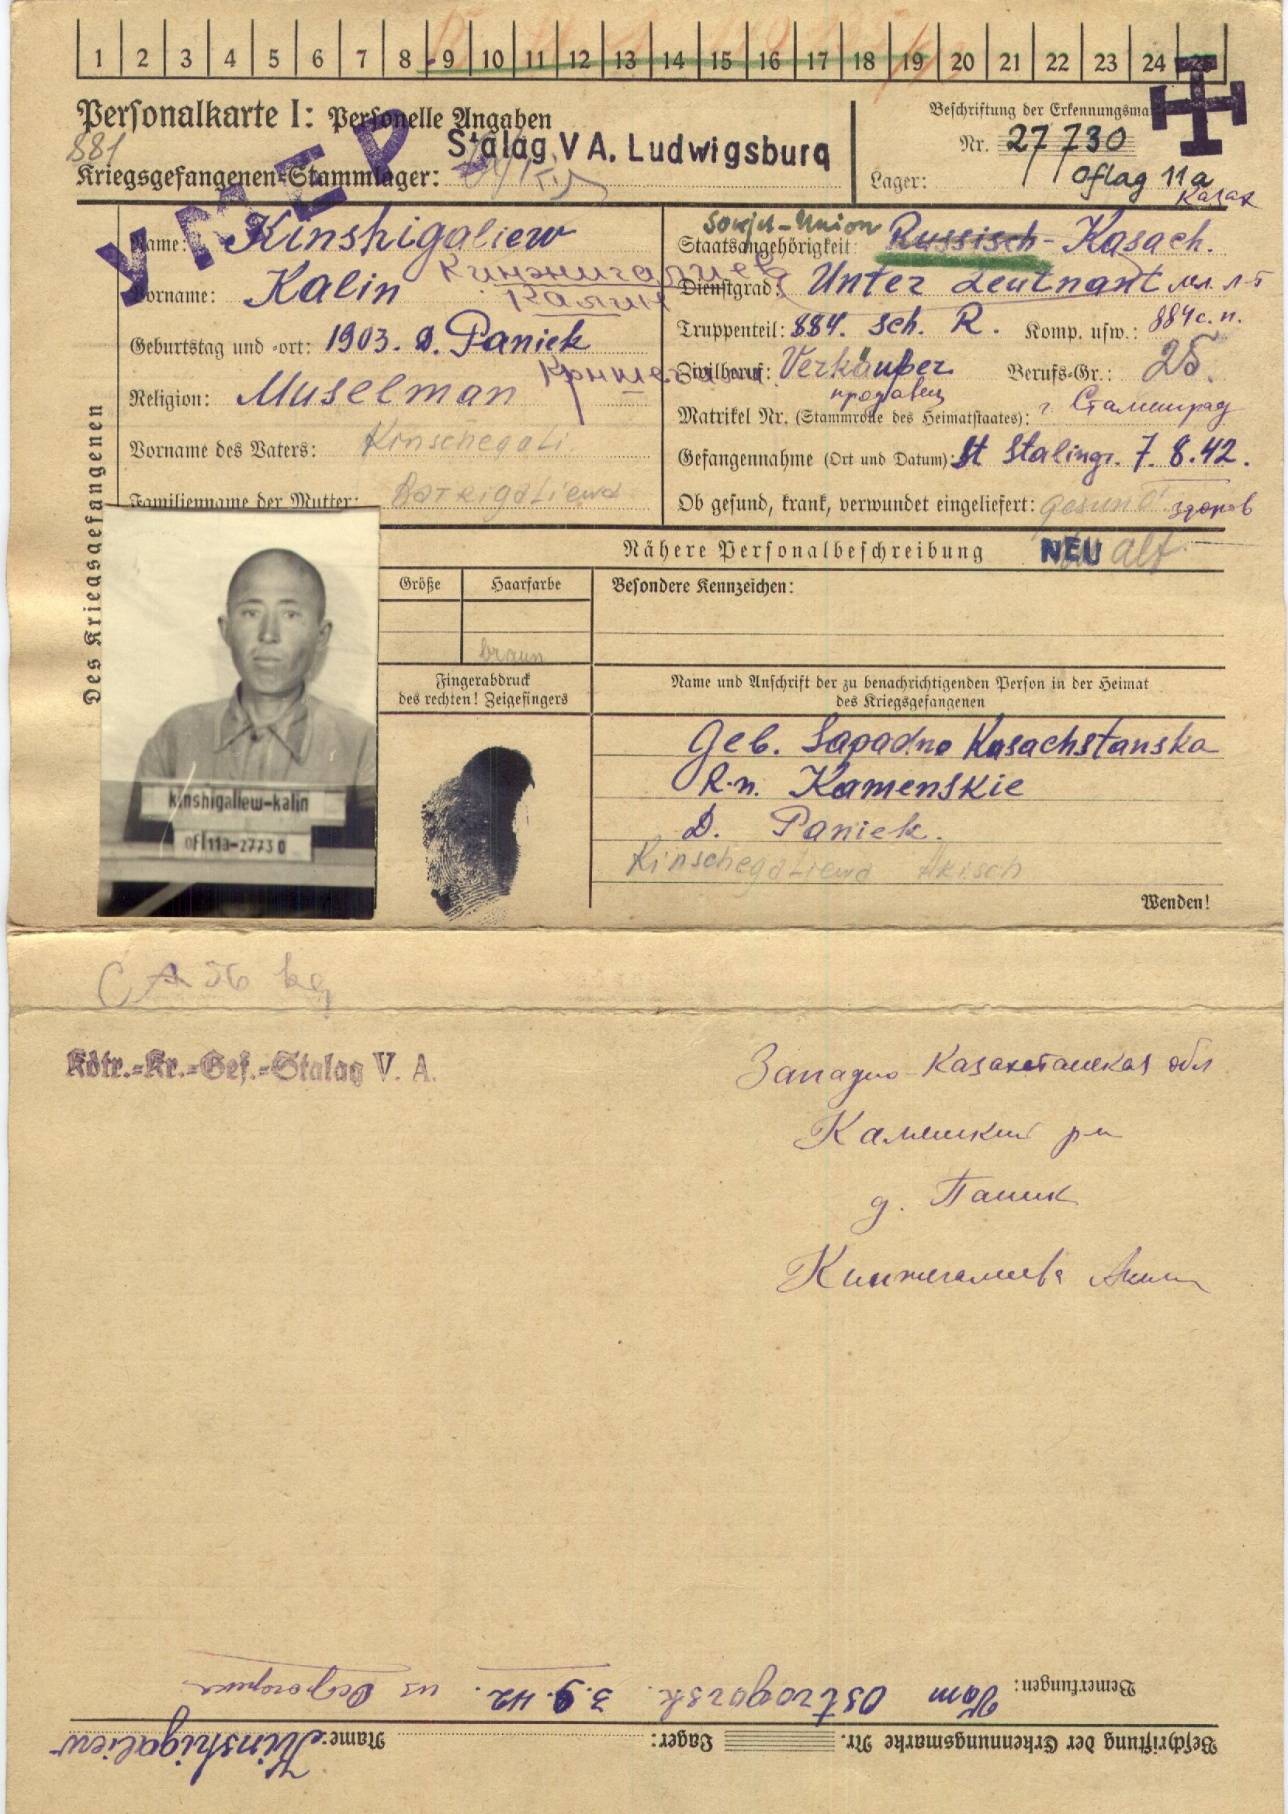 1 2 3 4 5 6 7 8 9 10 11 12 13 14 15 16 17 18 19 20 21 22 23 24 25
Personalkarte I: Personelle Angaben
Beschriftung der Erkennungsma
881
УМЕР
Stalag V A. Ludwigsburg
Nr. 27730
Kriegsgefangenen-Stammlager:
Lager: Oflag 11a
Казах
Des Kriegsgefangenen
Name: Kinshigaliew
Кинжигалиев
Vorname: Kalin
Калин
Geburtstag und -ort: 1903. D. Paniek
Religion: Muselman
Vorname des Vaters: Kinschegali
Familienname der Mutter:
Sowjet-Union
Staatsangehörigkeit: Russisch-Kasach.
Dienstgrad: Unter Leutnant мл. л-т
Truppenteil: 884. Sch. R. Komp. usw.: 884 с. п.
Zivilberuf: Verkäufer Berufs-Gr.: 25.
продавец
Matrikel Nr. (Stammrolle des Heimatstaates): г. Сталинград
Gefangennahme (Ort und Datum): St Stalingr. 7. 8. 42.
Ob gesund, krank, verwundet eingeliefert: gesund здоров
Nähere Personalbeschreibung NEU alt
Größe Haarfarbe Besondere Kennzeichen:
braun
Fingerabdruck
des rechten! Zeigefingers
Name und Anschrift der zu benachrichtigenden Person in der Heimat
des Kriegsgefangenen
Geb. Sapadno Kasachstanska
R-n. Kamenskie
D. Paniek.
Kinschegaliewa Akisch
Wenden!
kinshigaliew-kalin
ofl11a-27730
Kdtr.-Kr.-Gef.-Stalag V. A.
Западно-Казахстанская обл
Каменский рн
д. Паник
Кинжегалиева Акиш
Bemerkungen: Vom Ostrogorsk. 3. 9. 42. из Острогорска
Beschriftung der Erkennungsmarke Nr. Lager: Name: Kinshigaliew